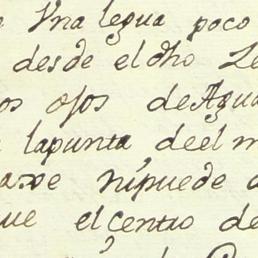 Vna legua poco
desde el dho Le
os ojos de Agua
lapunta deel m
axe nipuede a
que el centro de